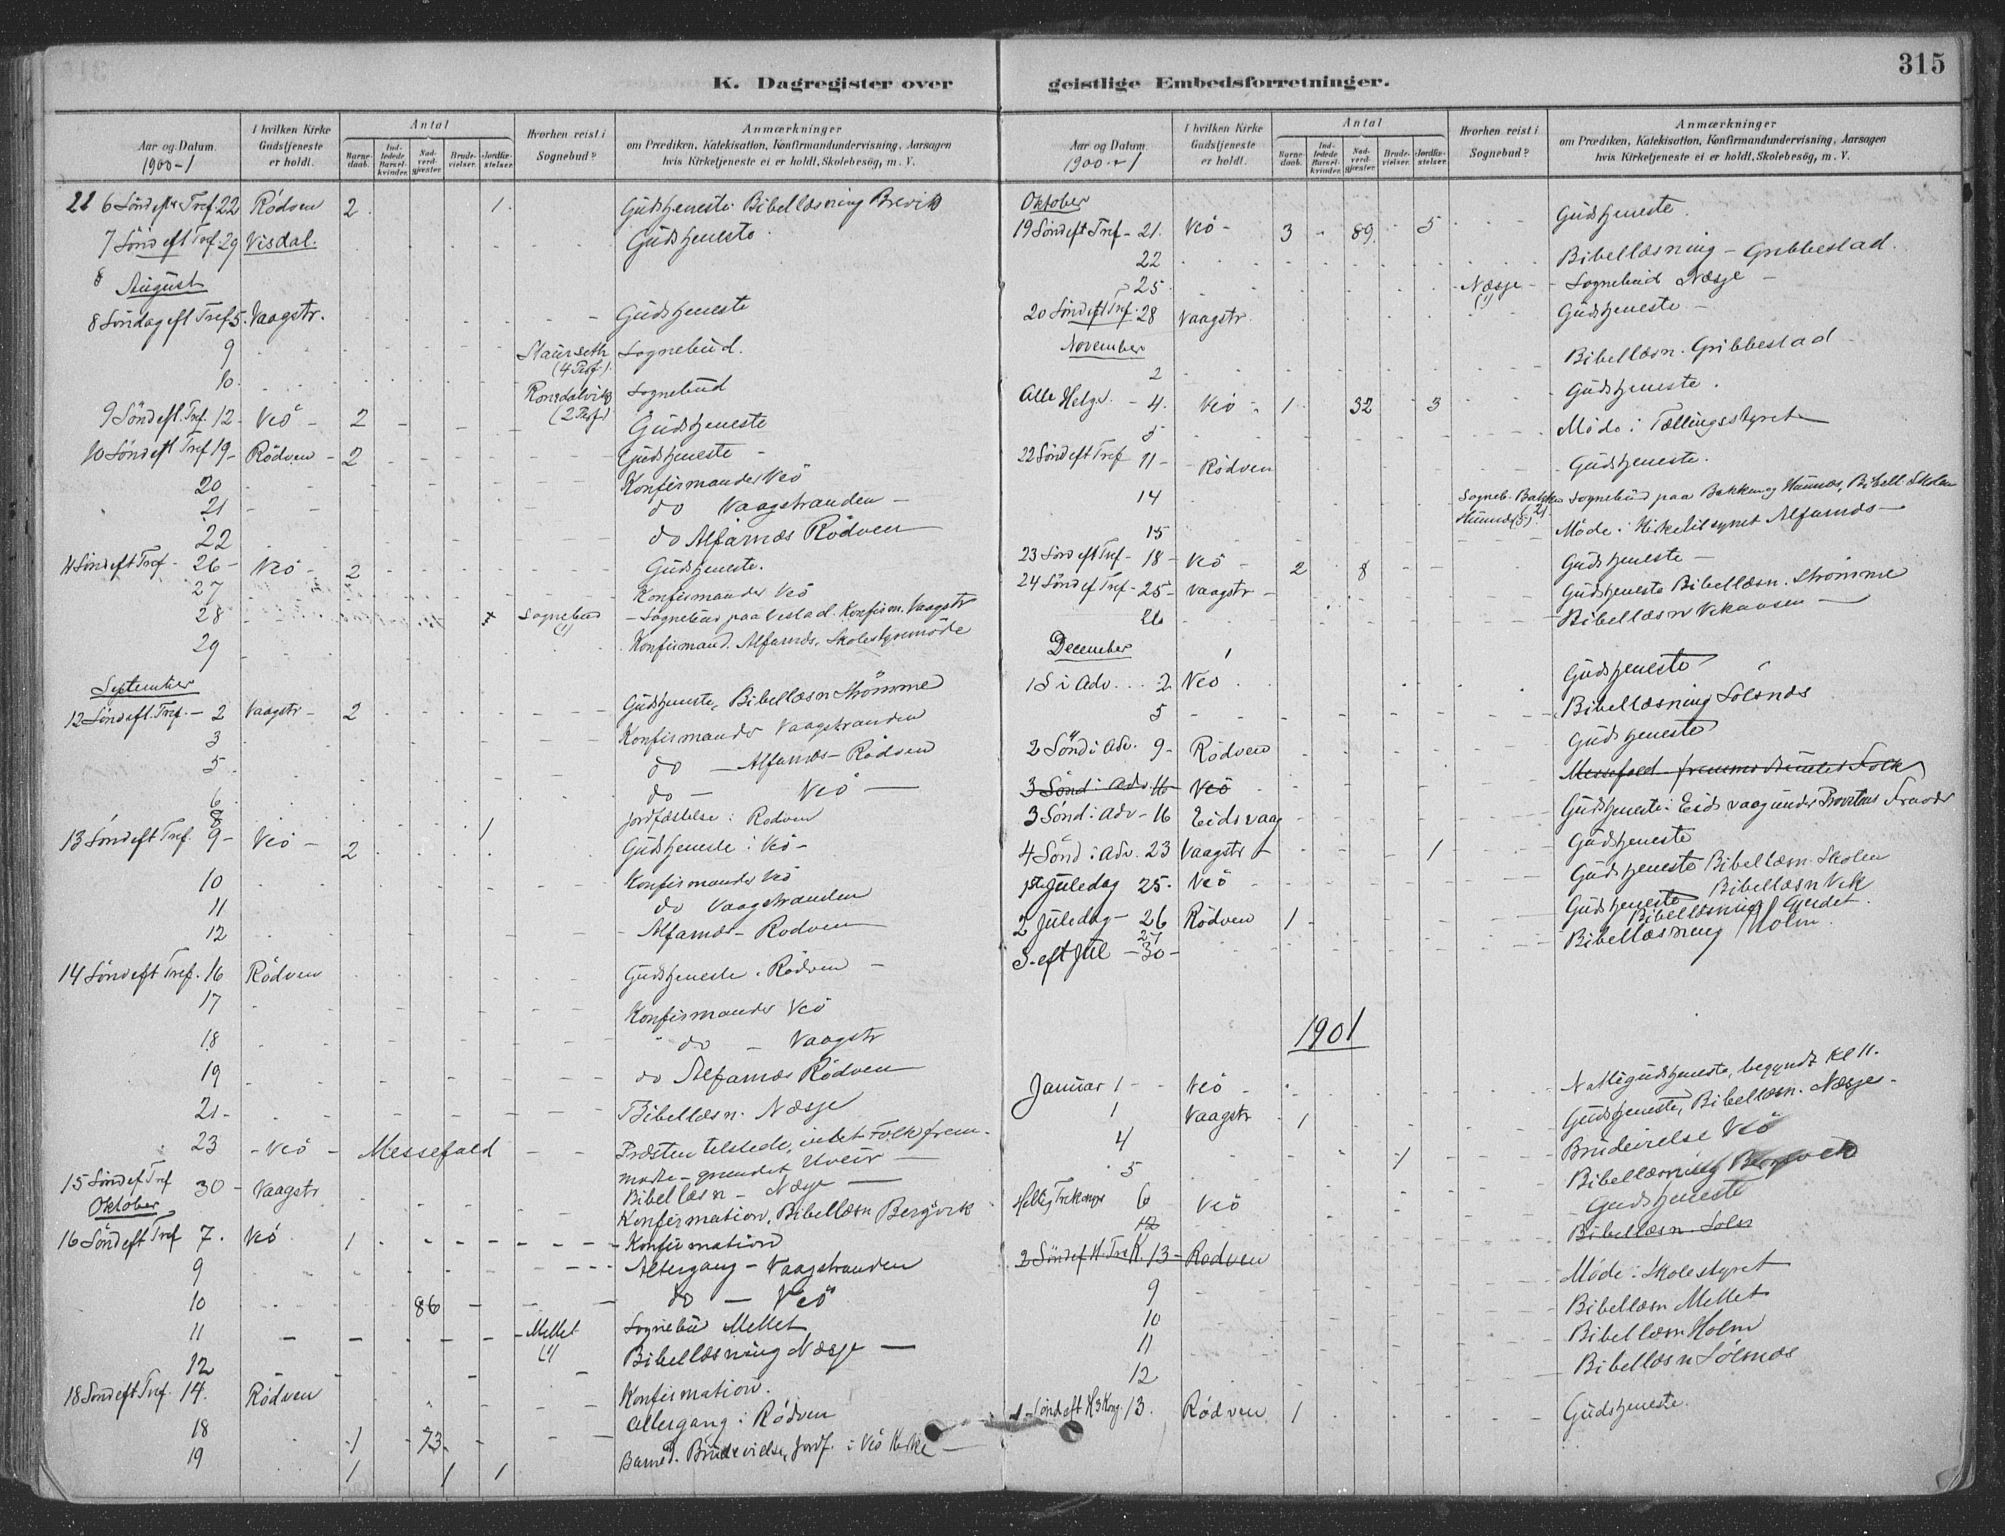 315
K. Dagregister over
geistlige Embedsforretninger.
Aar og Datum.
1900-1
I hvilken Kirke Gudstjeneste er holdt.
Antal
Barnedaab.
Indledede Barselkvinder.
Nadverdgjæster
Brudevielser.
Jordfæstelser.
Hvorhen reist i Sognebud?
Anmærkninger
om Prædiken, Katekisation, Konfirmandundervisning, Aarsagen
hvis Kirketjeneste ei er holdt, Skolebesøg, m. V.
6 Sönd eft Tref 22 Rödven 2 1 Gudstjeneste Bibellæsning Brevik
7 Sönd eft Tref 29 Visdal. Gudstjeneste
August
8 Söndag eft Tref 5. Vaagstr. Gudstjeneste
9 (4 Pers.) Sognebud.
10 (2 Pers) Sognebud
9 Sönd eft. Tref. 12 - Veö - 2 Gudstjeneste
10 Sönd eft Tref 19 - Rödven - 2 Gudstjeneste -
20 Konfirmander Veö
21 do Vaagstranden -
22 do Alfarnæs Rödven
11 Sönd eft Tref - 26 - Veö - 2 Gudstjeneste.
27 Konfirmander Veö
28 Sognebud (1) - Sognebud paa Vestad. Konfirm. Vaagstr
29 Konfirmand. Alfarnæs, Skolestyremöde
September
12 Sönd eft. Tref. - 2 Vaagstr - 2 Gudstjeneste, Bibellæsn Strömme
3 Konfirmander Vaagstranden
5 do - Alfarnæs - Rödven
6 do - Veö -
8 1 Jordfæstelse i Rödven
13 Sönd eft Tref. 9 - Veö - 2 Gudstjeneste i Veö -
10 Konfirmander Veö
11 do Vaagstranden
12 Alfarnæs - Rödven
14 Sönd eft Tref. 16 Rödven Gudstjeneste i Rödven -
17 Konfirmander Veö
18 do - Vaagstr
19 do Alfarnæs Rödven
21 - Bibellæsn. Næsje
23 - Veö - Messefald Præsten tilstede, intet Folk frem-
mödte - grundet Uveir -
15 Sönd ef Tref 30 - Vaagstr Bibellæsn - Næsje -
Konfirmation, Bibellæsn Bergsvik
Oktober
16 Sönd eft Tref 7. Veö 1 - Konfirmation
9 Altergang - Vaagstranden
10 86 do - Veö
11 Mellet (1) Sognebud Mellet
12 Bibellæsning Næsje -
18 Sönd eft Tref. 14. Rödven Konfirmation.
18 1 73 Altergang i Rödven
19 1 1 1 Barned. Brudevielse, Jordf. i Veö Kirke -
Aar og Datum.
1900-1
I hvilken Kirke Gudstjeneste er holdt.
Antal
Barnedaab.
Indledede Barselkvinder.
Nadverdgjæster
Brudevielser.
Jordfæstelser.
Hvorhen reist i Sognebud?
Anmærkninger
om Prædiken, Katekisation, Konfirmandundervisning, Aarsagen
hvis Kirketjeneste ei er holdt, Skolebesøg, m. V.
Oktober
19 Sönd eft Tref - 21. Veö - 3 89 5 Gudstjeneste.
22 Bibellæsning - Gribbestad.
25 Næsje (1) - Sognebud Næsje -
20 Sönd eft Tref. 28 Vaagstr. Gudstjeneste -
November
2 Bibellæsn. Gribbestad
Alle Helge. - 4. Veö - 1 32 3 Gudstjeneste.
5 Möde i Tællingsstyret
22 Sönd eft Tref 11 - Rödven Gudstjeneste.
14 Sogneb. Bakken (2) Sognebud paa Bakken og Hunnæs, Bibell. Skolen
15 Möde i Alfarnæs -
23 Sönd eft Tref - 18 - Veö - 2 8 Gudstjeneste -
24 Sönd ef Tref - 25 - Vaagstr - Gudstjeneste Bibellæsn. Strömme
26 Bibellæsn
December
1 S i Adv. .. 2 Veö Gudstjeneste
5 Bibellæsning Sölsnæs
2 Sönd i Adv. 9 - Rödven Gudstjeneste
3 Sönd i Adv 16 Veö Messefald Folk
3 Sönd i Adv - 16 Eidsvaag Gudstjeneste i Eidsvaag under Provstens
4 Sönd i Adv. 23 Vaagstr 1 Gudstjeneste
1ste Juledag 25. Veö Gudstjeneste Bibellæsn. Skolen
Bibellæsn Vik
2 Juledag - 26 Rödven 1 Gudstjeneste
27 Bibellæsning Gjerdet.
S. eft Jul - 30 - Bibellæsning Holm
1901
Januar 1 - Veö - Nattigudstjeneste, begyndt Kl 11.
1 Vaagstr 1 Gudstjeneste, Bibellæsn. Næsje -
4 1 Brudevielse Veö
5 Bibellæsning Bergsvik
Hellig Trekonger 6 Veö Gudstjeneste
12 Bibellæsn Söls
2 Sönd ef H. Tre K. 13 - Rödven
9 Möde i Skolestyret
10 Bibellæsn Mellet
11 Bibellæsn Holm
12 Bibellæsn Sölsnæs
1 Sönd eft H 3 Kong. 13. Rödven 1 Gudstjeneste.